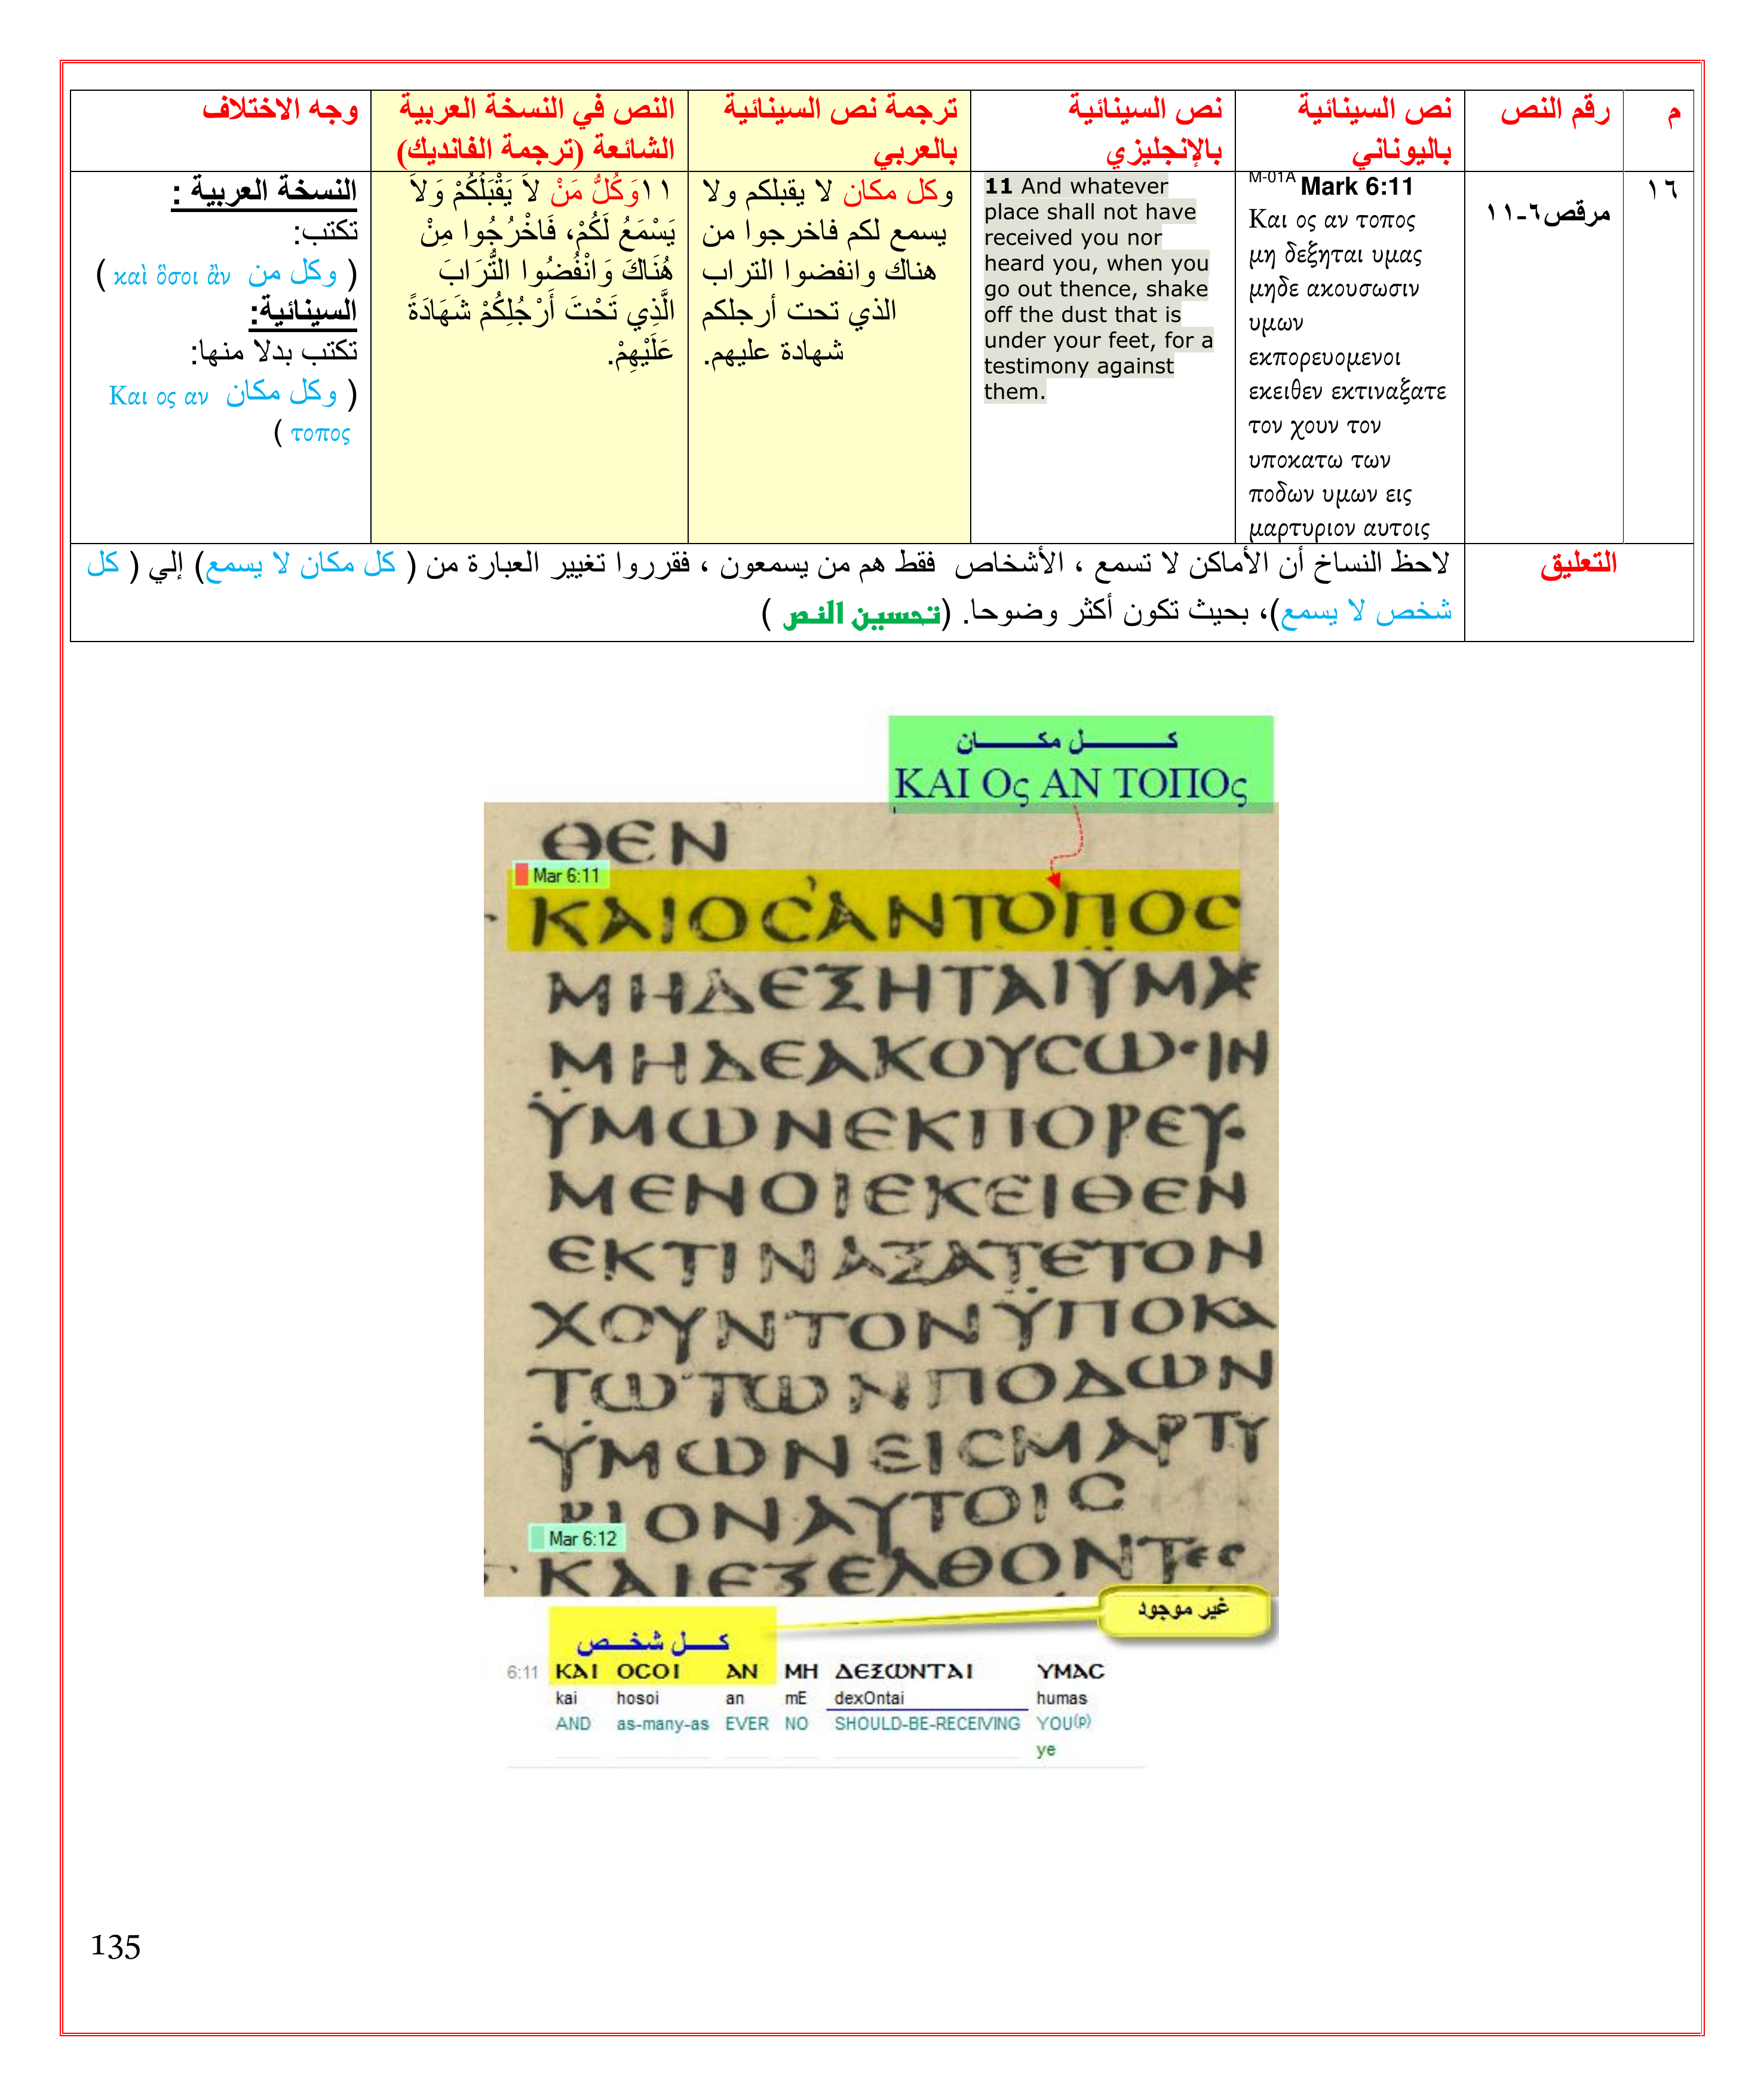 م
رقم النص
نص السينائية
باليوناني
نص السينائية
بالإنجليزي
ترجمة نص السينائية
بالعربي
النص في النسخة العربية
الشائعة (ترجمة الفانديك)
وجه الاختلاف
١٦
مرقص٦-١١
M-01A Mark 6:11
Και ος αν τοπος
μη δεξηται υμας
μηδε ακουσωσιν
υμων
εκπορευομενοι
εκειθεν εκτιναξατε
τον χουν τον
υποκατω των
ποδων υμων εις
μαρτυριον αυτοις
11 And whatever
place shall not have
received you nor
heard you, when you
go out thence, shake
off the dust that is
under your feet, for a
testimony against
them.
وكل مكان لا يقبلكم ولا
يسمع لكم فاخرجوا من
هناك وانفضوا التراب
الذي تحت أرجلكم
شهادة عليهم.
١١وَكُلُّ مَنْ لاَ يَقْبَلُكُمْ وَلاَ
يَسْمَعُ لَكُمْ، فَاخْرُجُوا مِنْ
هُنَاكَ وَانْفُضُوا التُّرَابَ
الَّذِي تَحْتَ أَرْجُلِكُمْ شَهَادَةً
عَلَيْهِمْ.
النسخة العربية :
تكتب:
( وكل من καὶ ὅσοι ἂν )
السينائية:
تكتب بدلا منها:
( وكل مكان Και ος αν
τοπος )
التعليق
لاحظ النساخ أن الأماكن لا تسمع ، الأشخاص فقط هم من يسمعون ، فقرروا تغيير العبارة من ( كل مكان لا يسمع) إلي ( كل
شخص لا يسمع)، بحيث تكون أكثر وضوحا. (تحسين النص )
كــــل مكــــان
ΚΑΙ Ος ΑΝ ΤΟΠΟς
ΘΕΝ
Mar 6:11
ΚΑΙΟϹΑΝΤΟΠΟϹ
ΜΗΔΕΞΗΤΑΙΫΜΑϹ
ΜΗΔΕΑΚΟΥϹΩϹΙΝ
ΫΜΩΝΕΚΠΟΡΕΥ
ΜΕΝΟΙΕΚΕΙΘΕΝ
ΕΚΤΙΝΑΞΑΤΕΤΟΝ
ΧΟΥΝΤΟΝΫΠΟΚΑ
ΤΩΤΩΝΠΟΔΩΝ
ΫΜΩΝΕΙϹΜΑΡΤΥ
ΡΙΟΝΑΥΤΟΙϹ
Mar 6:12
ΚΑΙΕΞΕΛΘΟΝΤΕϹ
غير موجود
كـــل شخـــص
6:11 ΚΑΙ ΟϹΟΙ ΑΝ ΜΗ ΔΕΞΩΝΤΑΙ ΥΜΑϹ
kai hosoi an mE dexOntai humas
AND as-many-as EVER NO SHOULD-BE-RECEIVING YOU(p)
ye
135